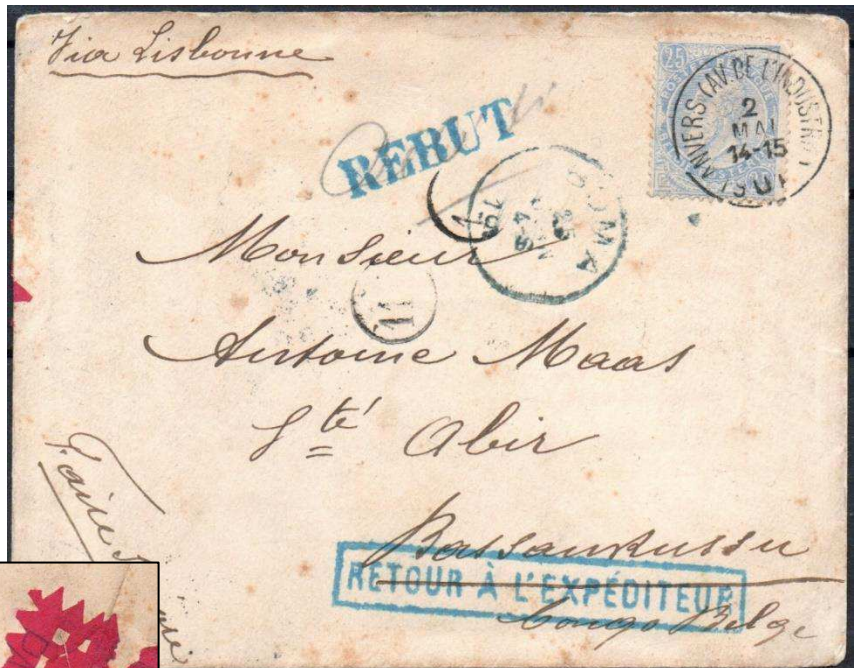 Via Lisbonne
25
ANVERS (AV. DE L'INDUSTRIE)
2
MAI
14-15
REBUT
BOMA
Monsieur
Antoine Maas
Sté Abir
Bassankussu
RETOUR À L'EXPÉDITEUR
Congo Belge
Faire